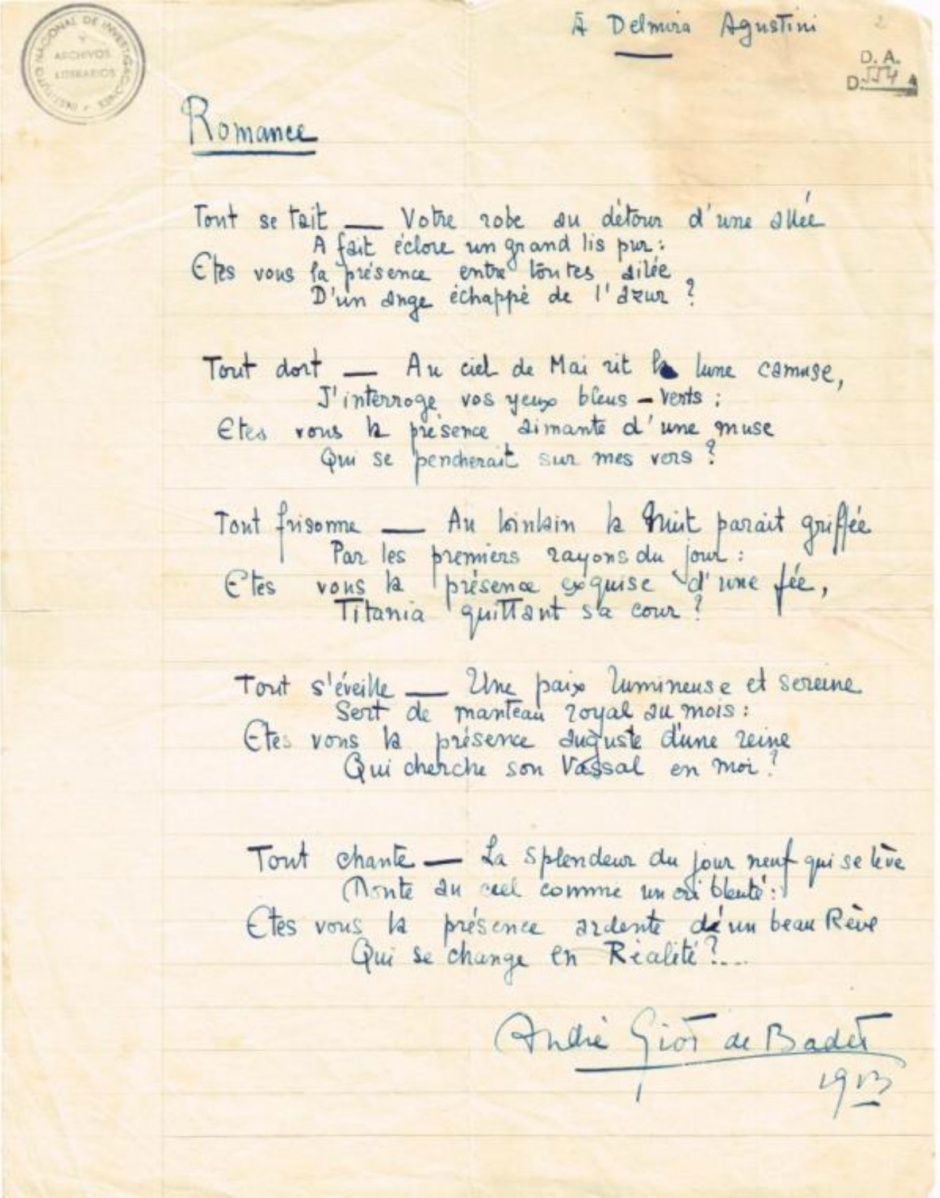 INSTITUTO NACIONAL DE INVESTIGACIONES
Y
ARCHIVOS
LITERARIOS
À Delmira Agustini
2
D. A.
D.
Romance
Tout se tait — Votre robe au détour d'une allée
A fait éclore un grand lis pur :
Etes vous la présence entre toutes ailée
D'un ange échappé de l'azur ?
Tout dort — Au ciel de Mai rit la lune camuse,
J'interroge vos yeux bleus - verts ;
Etes vous la présence aimante d'une muse
Qui se pencherait sur mes vers ?
Tout frisonne — Au lointain la Nuit parait griffée
Par les premiers rayons du jour :
Etes vous la présence exquise d'une fée,
Titania quittant sa cour ?
Tout s'éveille — Une paix lumineuse et sereine
Sert de manteau royal au mois :
Etes vous la présence auguste d'une reine
Qui cherche son Vassal en moi ?
Tout chante — La splendeur du jour neuf qui se lève
Monte au ciel comme un cri bleuté :
Etes vous la présence ardente d'un beau Rève
Qui se change en Réalité ?...
André Giot de Badet
1913